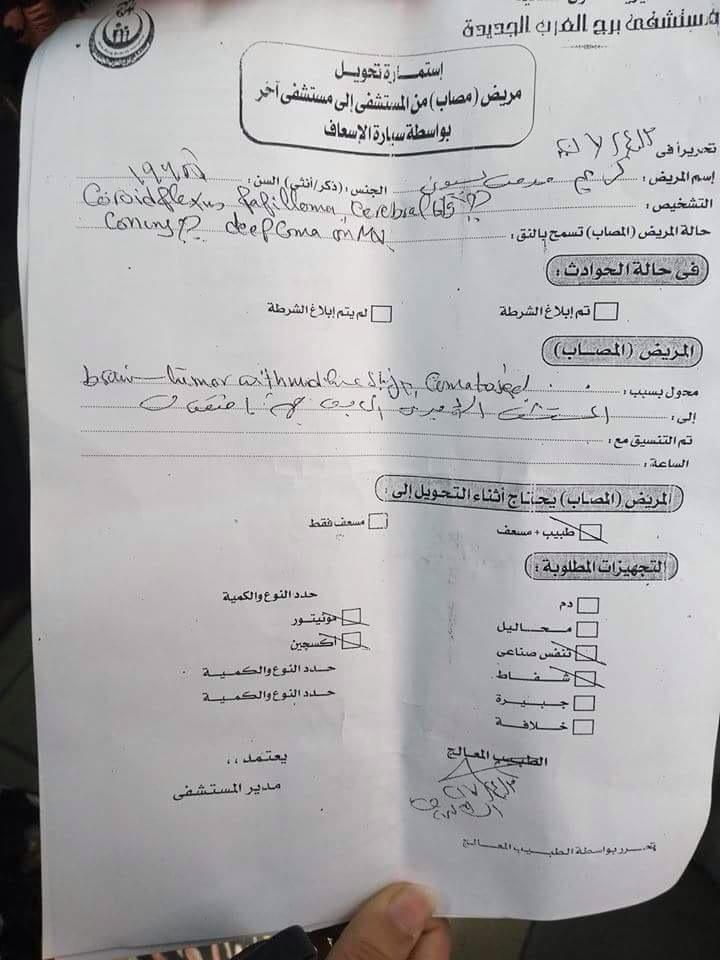 مستشفى برج العرب الجديدة
إستمــارة تحويل
مريض (مصاب) من المستشفى إلى مستشفى آخر
بواسطة سيارة الإسعاف
تحريراً فى
إسم المريض : كريم مدحت بسيونى الجنس : (ذكر/أنثى) السن :
التشخيص : Coroidflexus fafilloma, Cerebral
حالة المريض (المصاب) تسمح بالنق : Coning deep Coma on MV
فى حالة الحوادث :
تم إبلاغ الشرطة
لم يتم إبلاغ الشرطة
المريض (المصاب)
محول بسبب : brain tumor with midline shift, Comatosed
إلى : المستشفى
تم التنسيق مع :
الساعة :
المريض (المصاب) يحتاج أثناء التحويل إلى :
طبيب + مسعف
مسعف فقط
التجهيزات المطلوبة :
حدد النوع والكمية
دم
مونيتور
محــاليل
أكسجين
تنفس صناعى
حدد النوع والكمية
شفــاط
حدد النوع والكمية
جبـيرة
خلافـة
الطبيب المعالج
يعتمد ،،
مدير المستشفى
تحـرر بواسطة الطبيب المعـالج